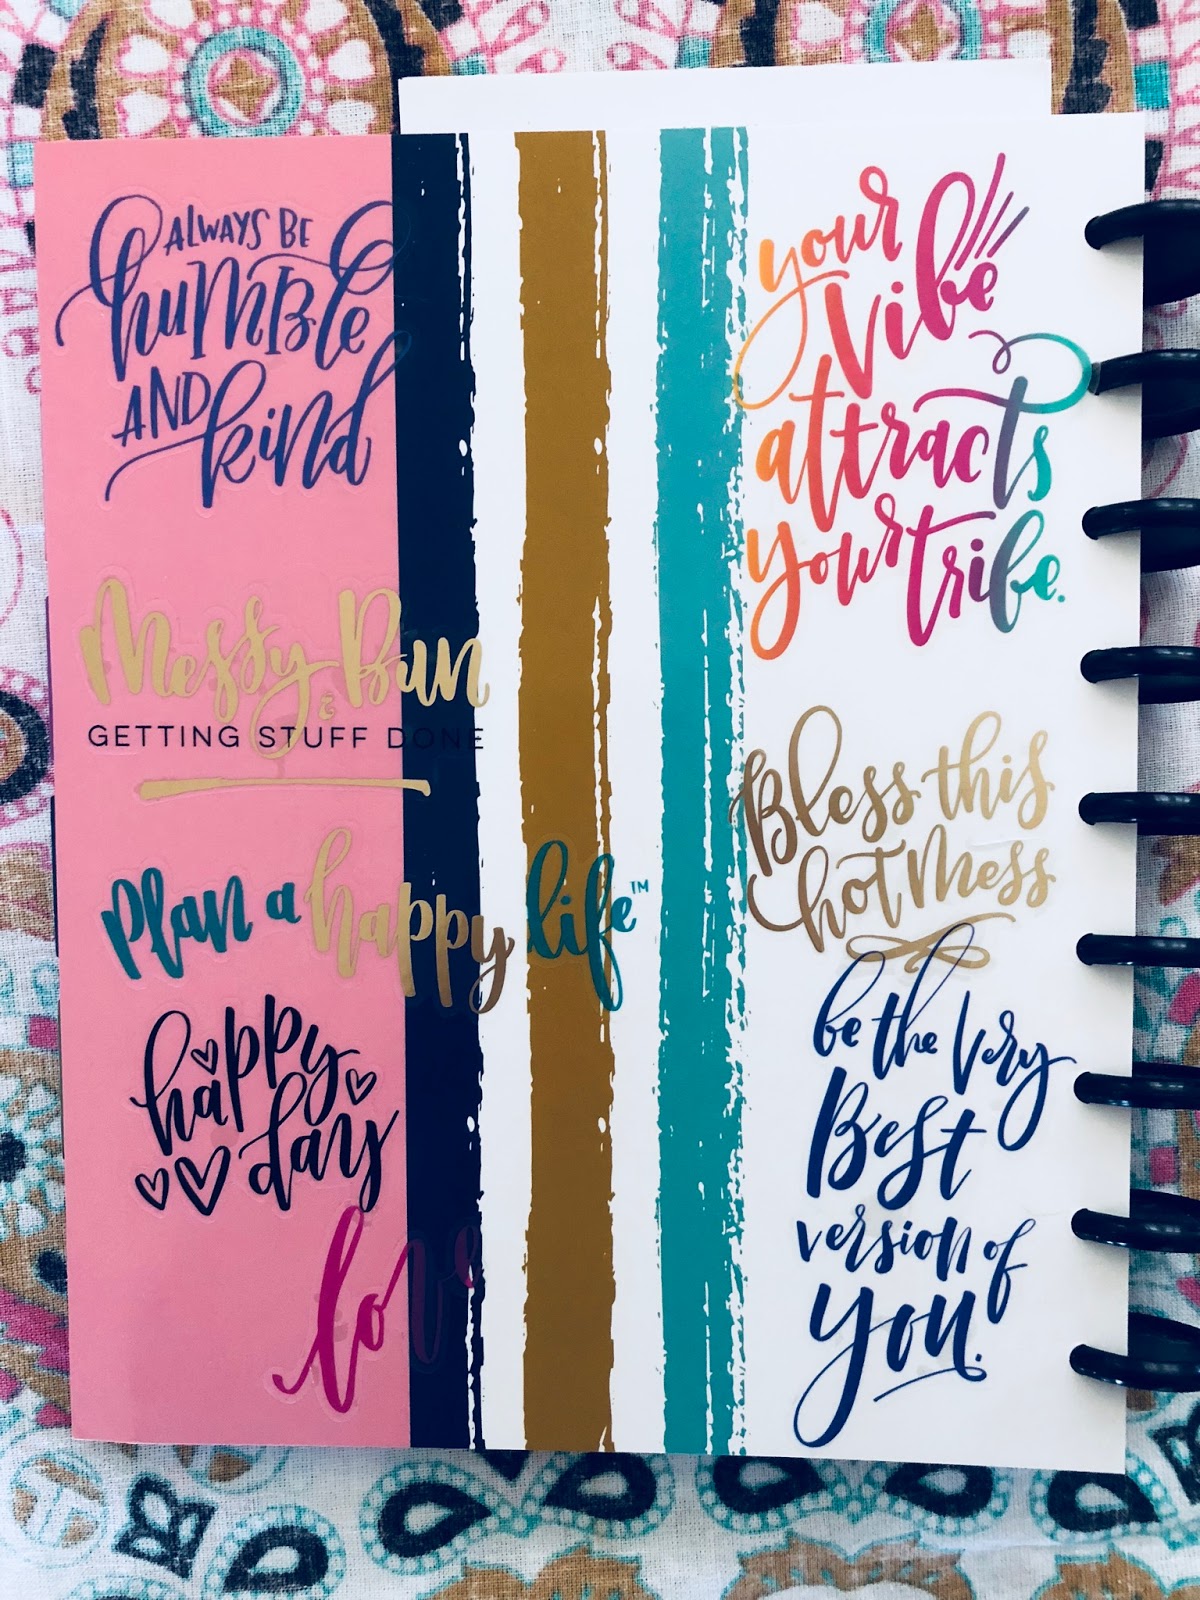 ALWAYS BE
humble
AND kind
Messy Bun
&
GETTING STUFF DONE
plan a happy life™
happy
day
love
your
vibe
attracts
your tribe.
Bless this
hot mess
be the very
Best
version of
you.